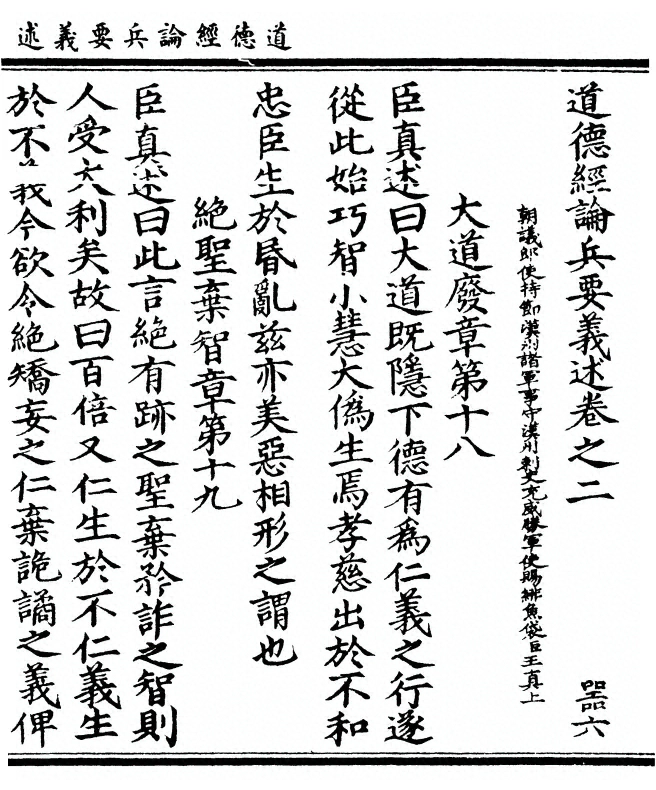 道德經論兵要義述
道德經論兵要義述卷之二
器六
朝議郎使持節漢州諸軍事守漢州刺史充威勝軍使賜緋魚袋臣王真上
大道廢章第十八
臣真述曰大道既隱下德有為仁義之行遂
從此始巧智小慧大僞生焉孝慈出於不和
忠臣生於昏亂兹亦美惡相形之謂也
絕聖棄智章第十九
臣真述曰此言絕有跡之聖棄矜詐之智則
人受大利矣故曰百倍又仁生於不仁義生
於不義今欲令絕矯妄之仁棄詭譎之義俾